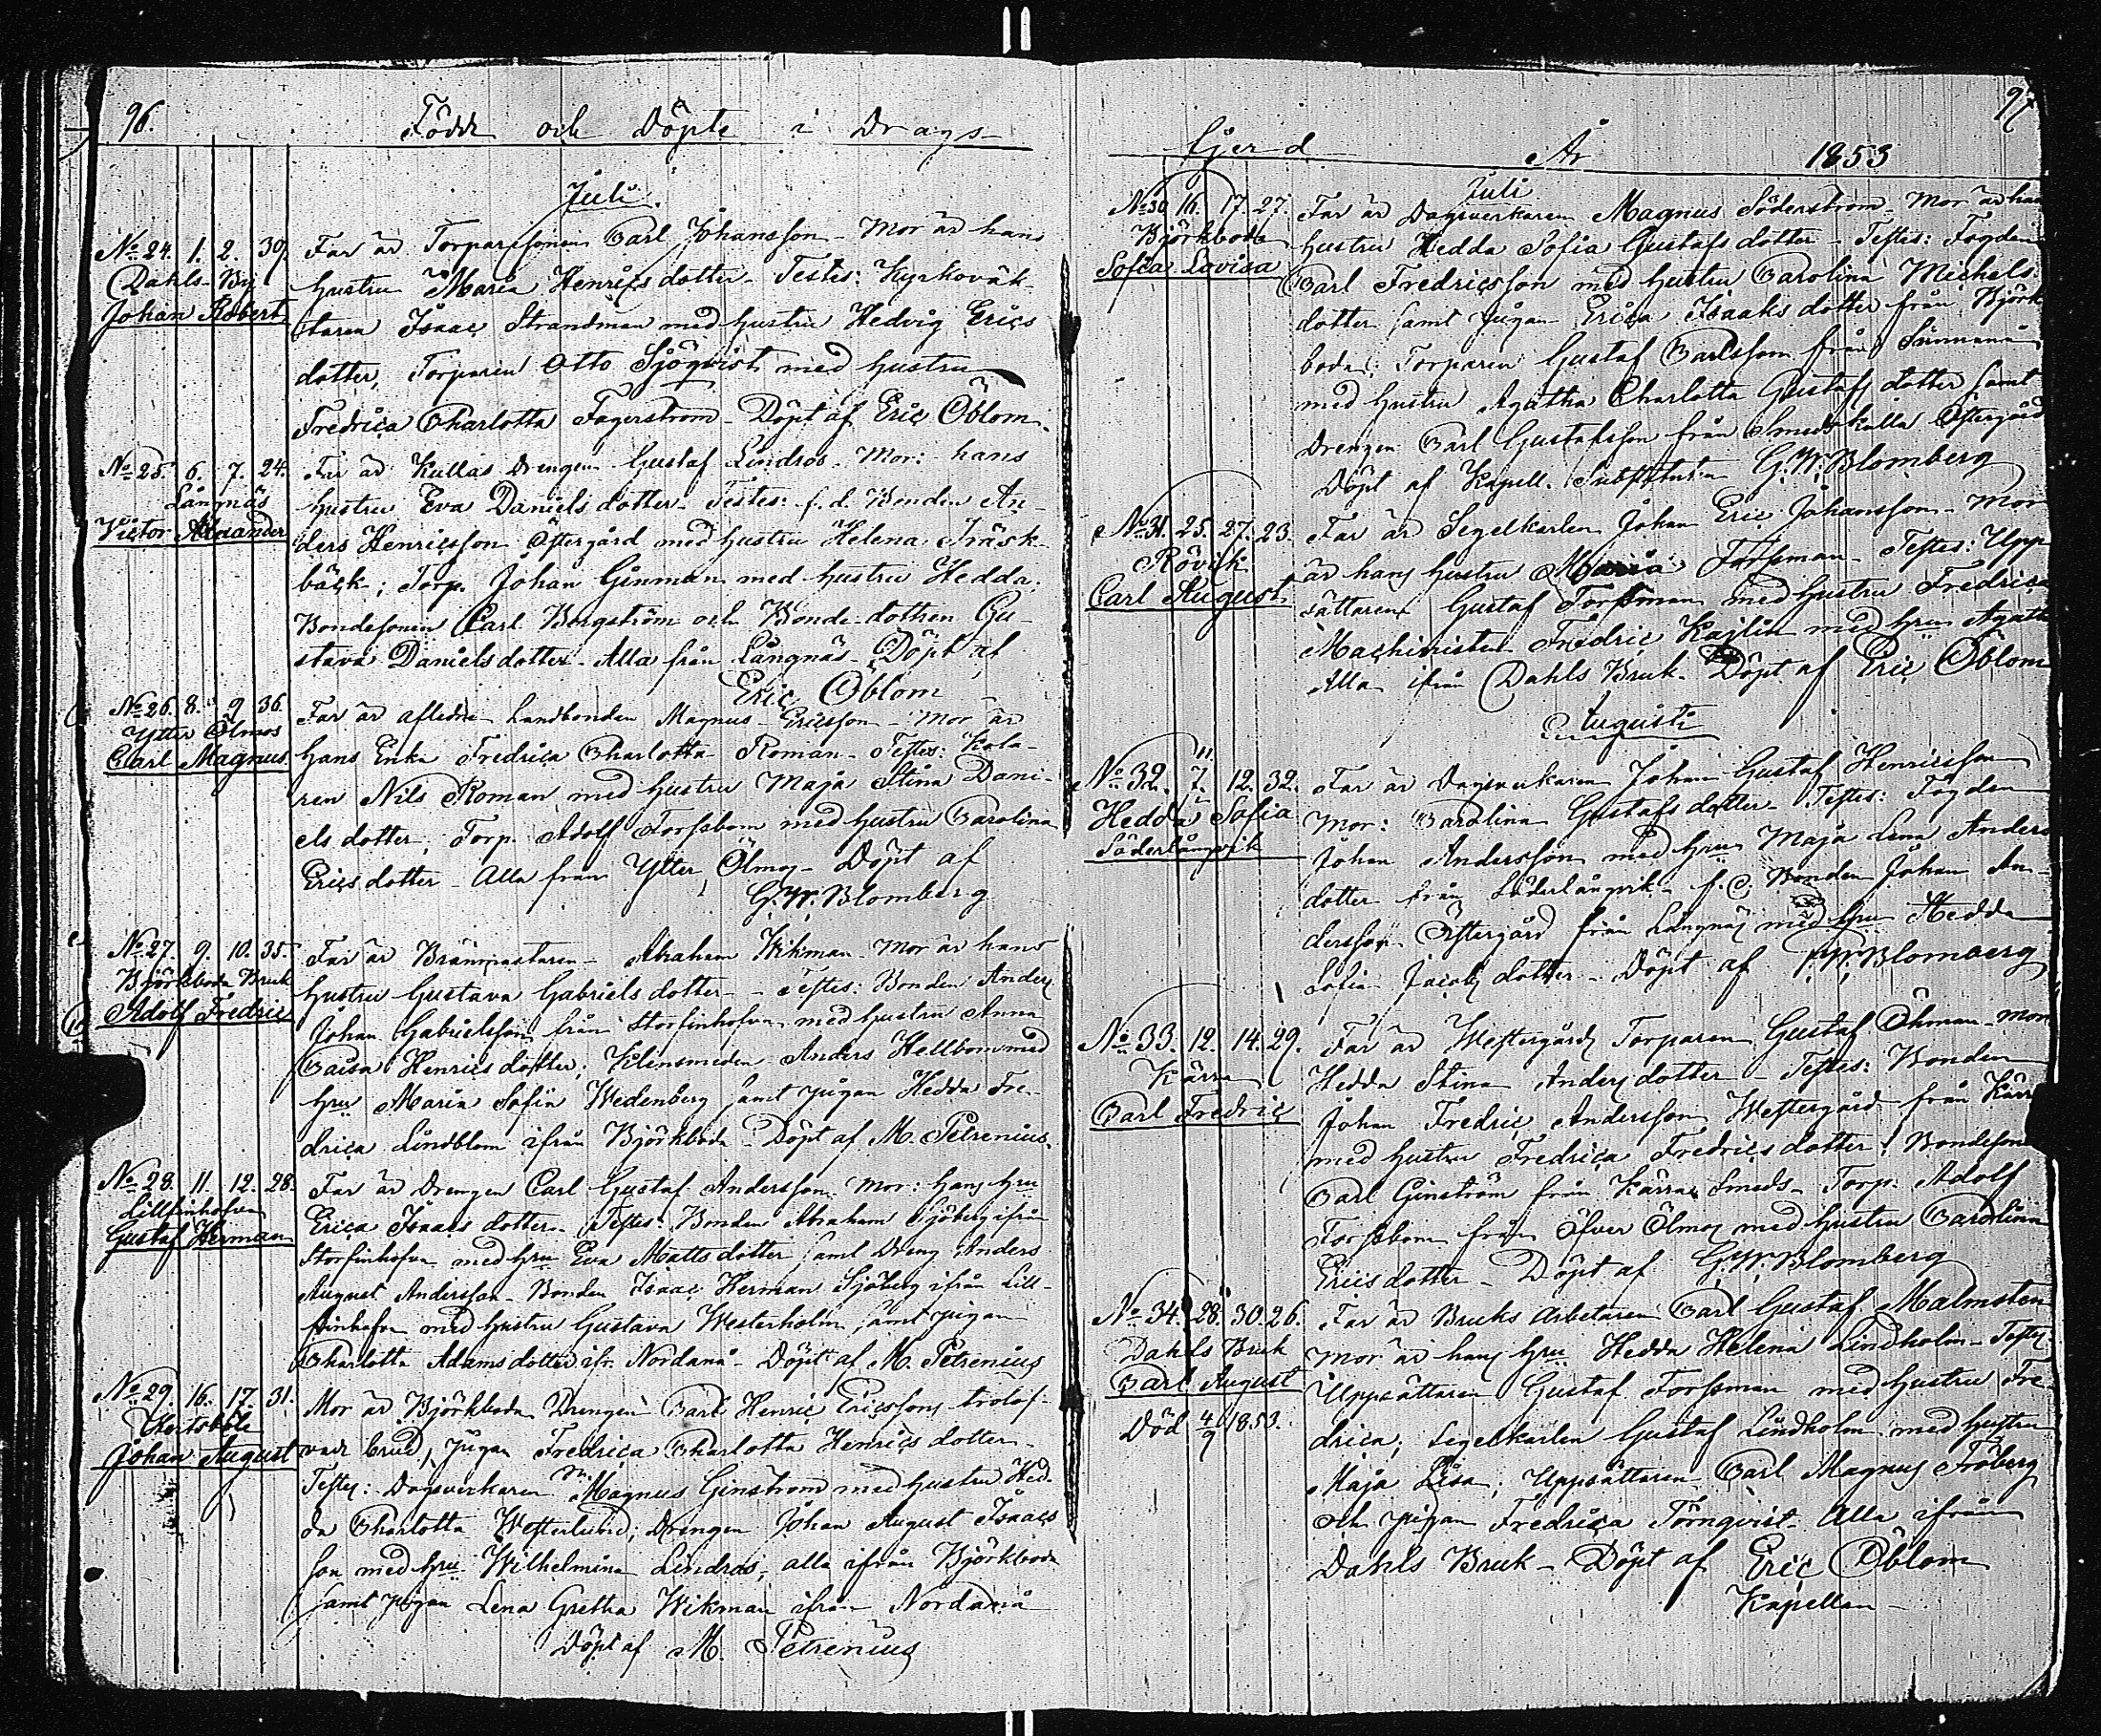 96.
Födde och Döpte i Drags-
Juli.
No 24. 1. 2. 39.
Dahls-By
Johan Robert
Far är Torparesonen Carl Johansson - Mor är hans
hustru Maria Henricsdotter - Testes: Kyrkoväk-
taren Isaac Strandman med hustru Hedvig Erics
dotter, Torparen Otto Sjöqvist med hustru
Fredrica Charlotta Fagerström - Döpt af Eric Öblom.
No 25. 6. 7. 24.
Långnäs
Victor Alexander
Far är Kullas Drengen Gustaf Lindroos - Mor: hans
hustru Eva Danielsdotter - Testes: f.d. Bonden An-
ders Henricsson Östergård med hustru Helena Träsk-
bäck; Torp. Johan Ginman med hustru Hedda;
Bondesonen Carl Borgström och Bonde-dottren Gu-
stava Danielsdotter - Alla från Långnäs - Döpt af
Eric Öblom
No 26. 8. 9. 36.
Ytter Ölmos
Carl Magnus
Far är aflidne Landbonden Magnus Ericsson - Mor är
hans Enka Fredrica Charlotta Roman - Testes: Kola-
ren Nils Roman med hustru Maja Stina Dani-
elsdotter, Torp. Adolf Forssbom med hustru Carolina
Ericsdotter - Alla från Ytter Ölmos - Döpt af
G. W. Blomberg
No 27. 9. 10. 35.
Björkboda Bruk
Adolf Fredric
Far är Brännmästaren Abraham Wikman - Mor är hans
hustru Gustava Gabrielsdotter - Testes: Bonden Anders
Johan Gabrielsson från Storfinhofva med hustru Anna
Caisa Henricsdotter; Klensmeden Anders Hellbom med
hru Maria Sofia Wedenberg samt pigan Hedda Fre-
drica Lindblom ifrån Björkboda - Döpt af M. Petrenius.
No 28. 11. 12. 28.
Lillfinhofva
Gustaf Herman
Far är Drengen Carl Gustaf Andersson Mor: hans hru
Erica Isaacsdotter - Testes: Bonden Abraham Sjöberg ifrån
Storfinhofva med hru Eva Mattsdotter samt Dreng Anders
August Andersson - Bonden Isaac Herman Sjöberg ifrån Lill
finhofva med hustru Gustava Westerholm samt pigan
Charlotta Adamsdotter ifr. Nordanå - Döpt af M. Petrenius
No 29. 16. 17. 31.
Johan August
Mor är Björkboda Drengen Carl Henric Ericssons trolof-
vade brud, Pigan Fredrica Charlotta Henricsdotter -
Testes: Dagsverkaren Magnus Ginström med hustru Hed-
da Charlotta Westerlund; Drengen Johan August Isaacs
son med hru Wilhelmina Lindroos, alla ifrån Björkboda
samt pigan Lena Gretha Wikman ifrån Nordanå
Döpt af M. Petrenius
97
fjerd År 1853
Juli
No 30. 16. 17. 27.
Björkboda
Sofia Lovisa
Far är Dagsverkaren Magnus Söderström - Mor är hans
hustru Hedda Sofia Gustafsdotter - Testes: Fogden
Carl Fredricsson med hustru Carolina Michels
dotter samt Pigan Erica Isaaksdotter från Björk
boda; Torparen Gustaf Carlsson från Sunnanå
med hustru Agatha Charlotta Gustafsdotter samt
Drengen Carl Gustafsson från Smedskulla Östergård
Döpt af Kapell. Substituten G. W. Blomberg
No 31. 25. 27. 23.
Rövik
Carl August
Far är Segelkarlen Johan Eric Johansson - Mor
är hans hustru Maria Forssman - Testes: Upp
sättaren Gustaf Forssman med hustru Fredrica
Machinisten Fredric Kajlin med hru Agatha
Alla ifrån Dahls Bruk - Döpt af Eric Öblom
Augusti
No 32. 7. 12. 32.
Hedda Sofia
Söderlångvik
Far är Dagsverkaren Johan Gustaf Henricsson
Mor: Carolina Gustafsdotter - Testes: Fogden
Johan Andersson med hru Maja Lena Anders
dotter från Söderlångvik - f.d. Bonden Johan An-
dersson Östergård från Långnäs med hru Hedda
Sofia Jacobsdotter - Döpt af G. W. Blomberg
No 33. 12. 14. 29.
Kärra
Carl Fredric
Far är Westergårds Torparen Gustaf Öhman - Mor
Hedda Stina Andersdotter - Testes: Bonden
Johan Fredric Andersson Westergård från Kärra
med hustru Fredrica Fredricsdotter; Bondesonen
Carl Ginström från Kärra Smeds - Torp. Adolf
Forssbom från Öfver Ölmos med hustru Carolina
Ericsdotter - Döpt af G. W. Blomberg
No 34. 28. 30. 26.
Dahls Bruk
Carl August
Död 4/9 1853.
Far är Bruks Arbetaren Carl Gustaf Malmsten
Mor är hans hru Hedda Helena Lindholm - Testes:
Uppsättaren Gustaf Forssman med hustru Fre
drica; Segelkarlen Gustaf Lindholm med hustru
Maja Lisa; Uppsättaren Carl Magnus Fröberg
och pigan Fredrica Törnqvist - Alla ifrån
Dahls Bruk - Döpt af Eric Öblom
Kapellan -